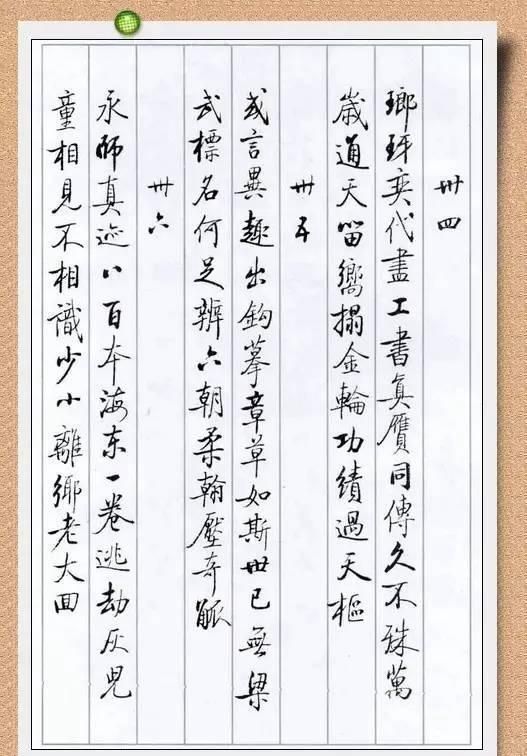 卅四
瑯玡奕代盡工書真贋同傳久不殊萬
歲通天留嚮搨金輪功績過天樞
卅五
或言異趣出鈎摹章草如斯世已無梁
武標名何足辨六朝柔翰壓奇觚
卅六
永師真迹八百本海东一卷逃劫灰兒
童相見不相識少小離鄉老大回